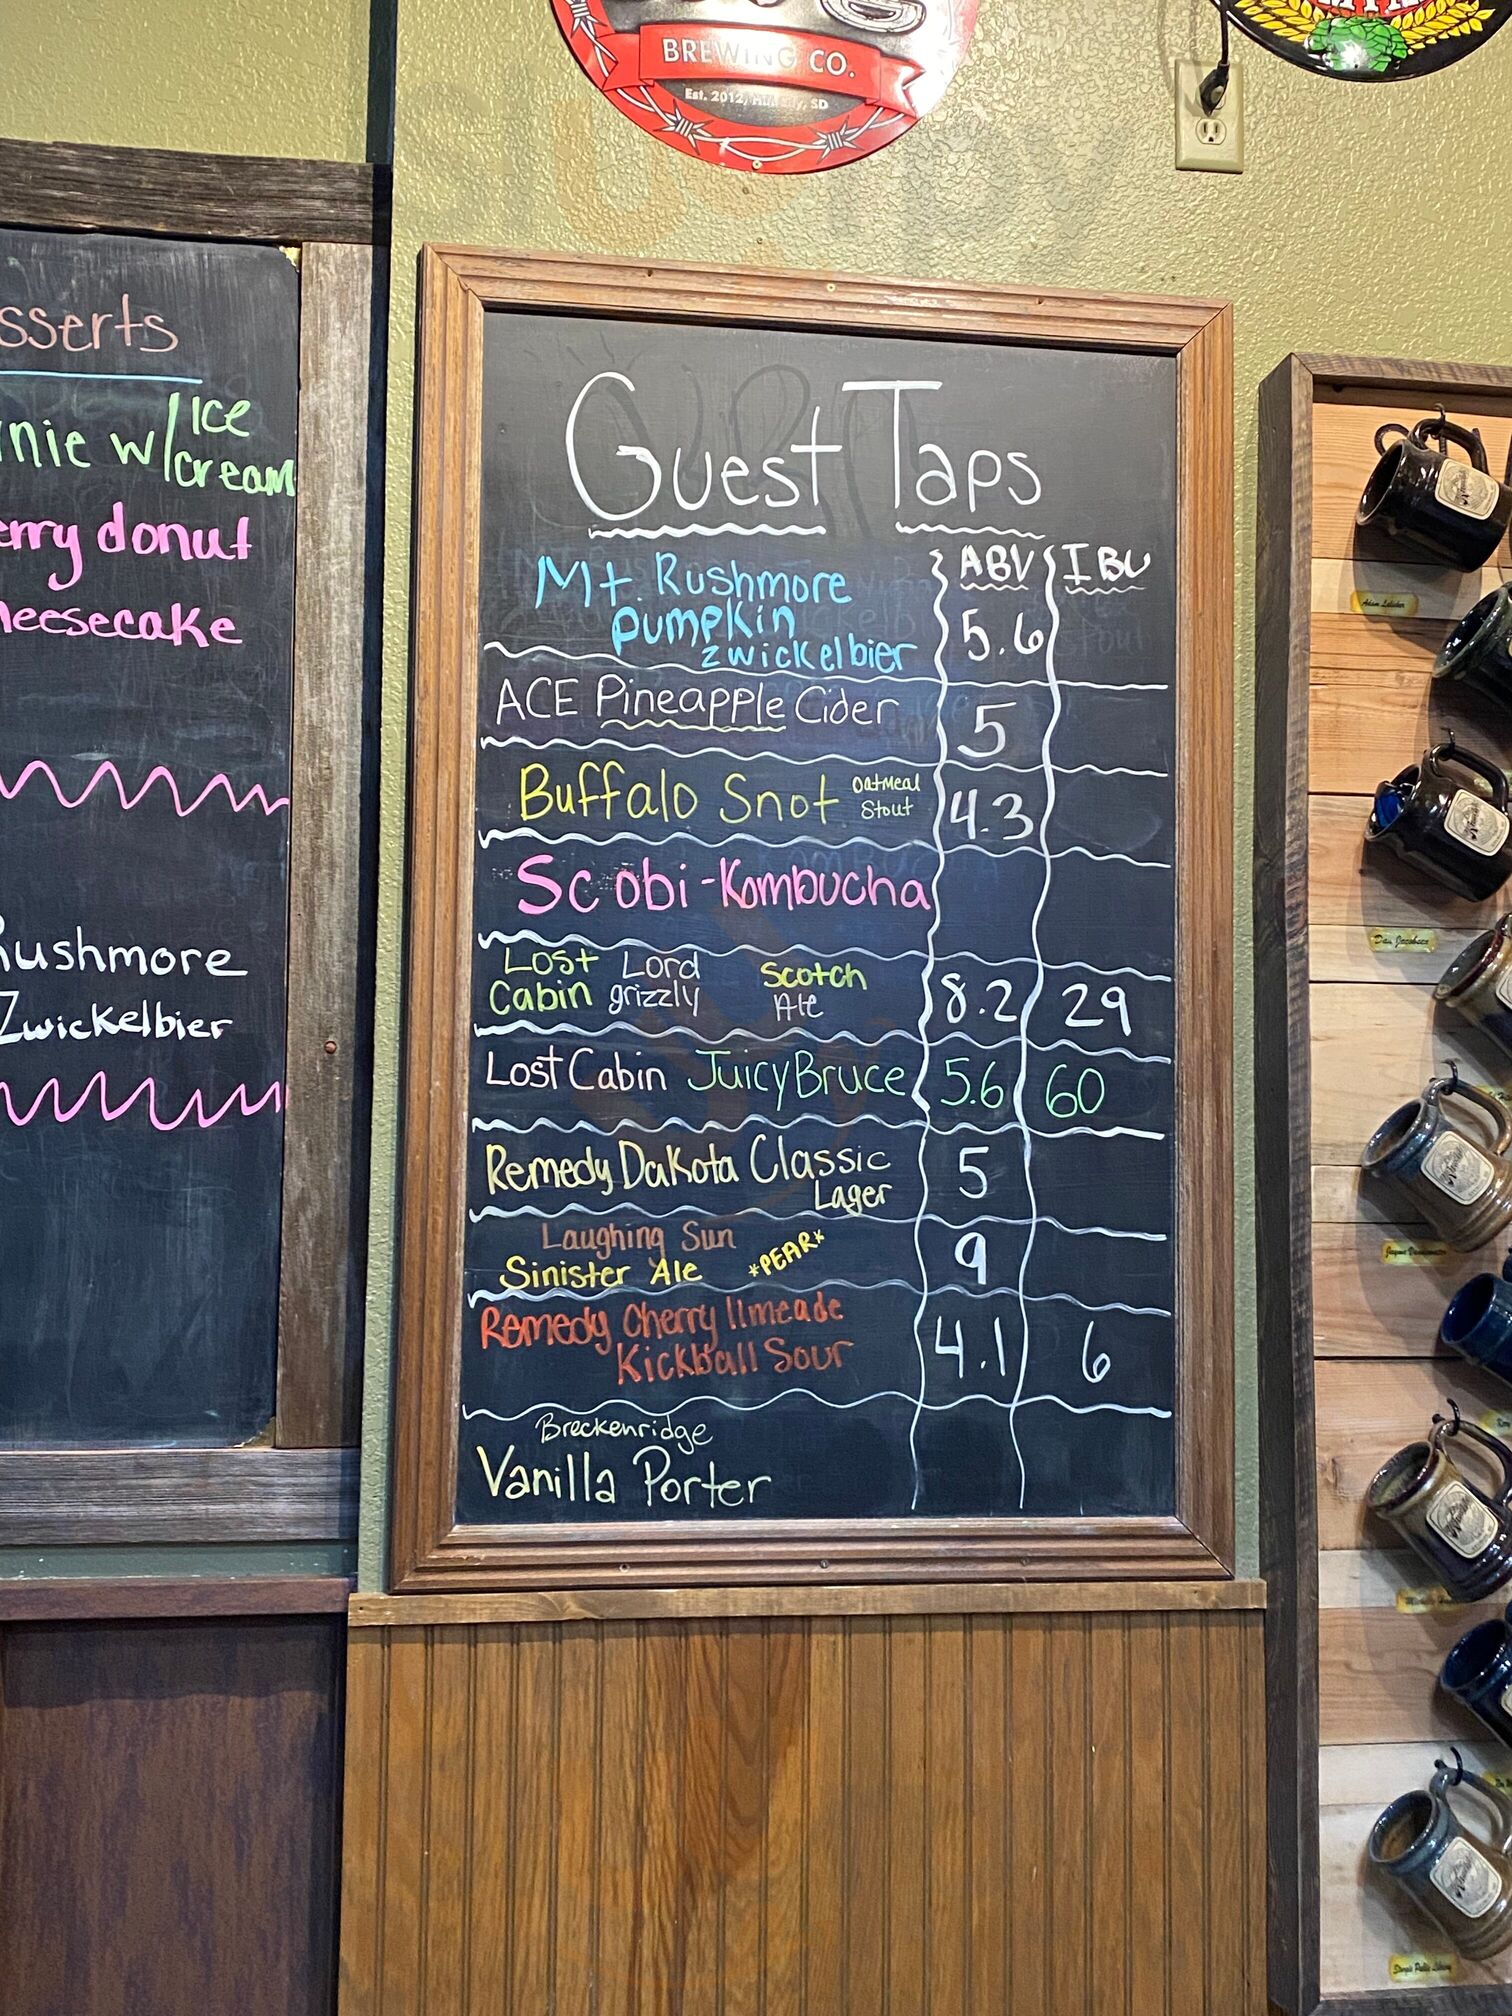 BREWING CO.
Est. 2012, Hill City, SD
sserts
nie w/ Ice
cream
erry donut
heesecake
Rushmore
Zwickelbier
Guest Taps
ABV IBU
Mt. Rushmore
pumpkin
zwickelbier 5.6
ACE Pineapple Cider 5
Buffalo Snot Oatmeal
Stout 4.3
Scobi-Kombucha
Lost Lord Scotch
Cabin grizzly Ale 8.2 29
Lost Cabin Juicy Bruce 5.6 60
Remedy Dakota Classic
Lager 5
Laughing Sun
Sinister Ale *PEAR* 9
Remedy Cherry llmeade
Kickball Sour 4.1 6
Breckenridge
Vanilla Porter
Sturgis Public Library